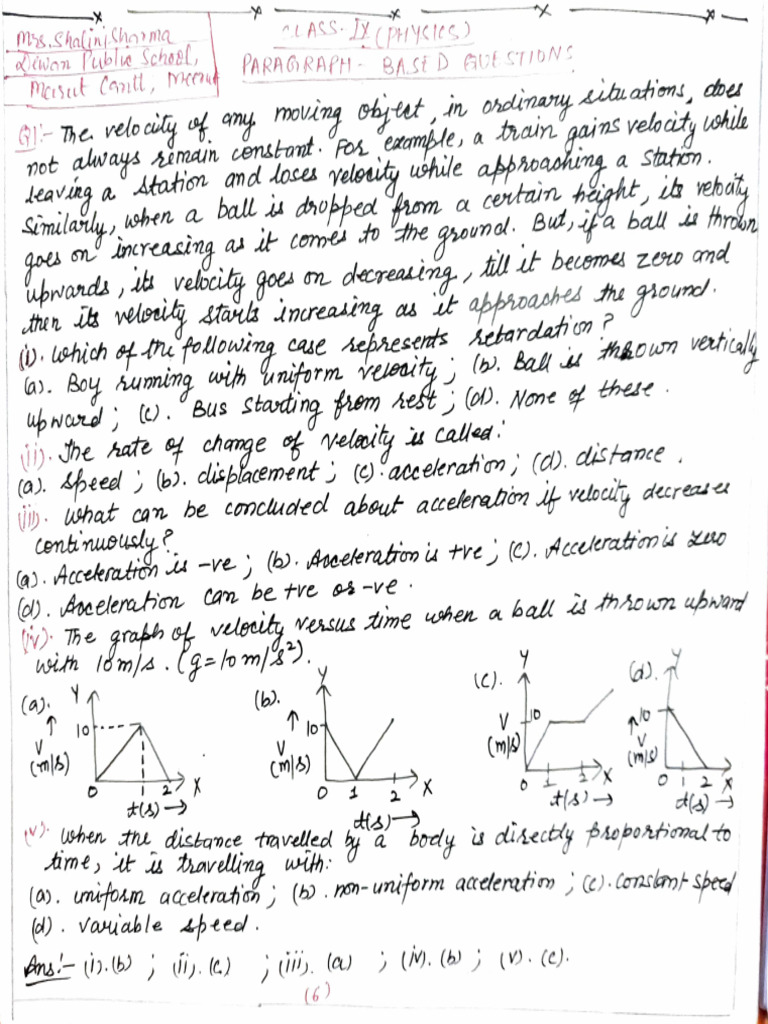 Mrs. Shalini Sharma
Diwan Public School,
Meerut Cantt, Meerut
CLASS-IX (PHYSICS)
PARAGRAPH-BASED QUESTIONS
Q1:- The velocity of any moving object, in ordinary situations, does
not always remain constant. For example, a train gains velocity while
leaving a station and loses velocity while approaching a station.
Similarly, when a ball is dropped from a certain height, its velocity
goes on increasing as it comes to the ground. But, if a ball is thrown
upwards, its velocity goes on decreasing, till it becomes zero and
then its velocity starts increasing as it approaches the ground.
(i). Which of the following case represents retardation?
(a). Boy running with uniform velocity; (b). Ball is thrown vertically
upward; (c). Bus starting from rest; (d). None of these.
(ii). The rate of change of velocity is called:
(a). speed; (b). displacement; (c). acceleration; (d). distance.
(iii). What can be concluded about acceleration if velocity decreases
continuously?
(a). Acceleration is -ve; (b). Acceleration is +ve; (c). Acceleration is zero
(d). Acceleration can be +ve or -ve.
(iv). The graph of velocity versus time when a ball is thrown upward
with 10 m/s. (g=10 m/s²).
(a). Y 10 V (m/s) 0 1 2 X t(s) →
(b). Y 10 V (m/s) 0 1 2 X t(s) →
(c). Y 10 V (m/s) 0 1 2 X t(s) →
(d). Y 10 V (m/s) 0 1 2 X t(s) →
(v). When the distance travelled by a body is directly proportional to
time, it is travelling with:
(a). uniform acceleration; (b). non-uniform acceleration; (c). constant speed
(d). variable speed.
Ans:- (i). (b) ; (ii). (c) ; (iii). (a) ; (iv). (b) ; (v). (c).
(6)